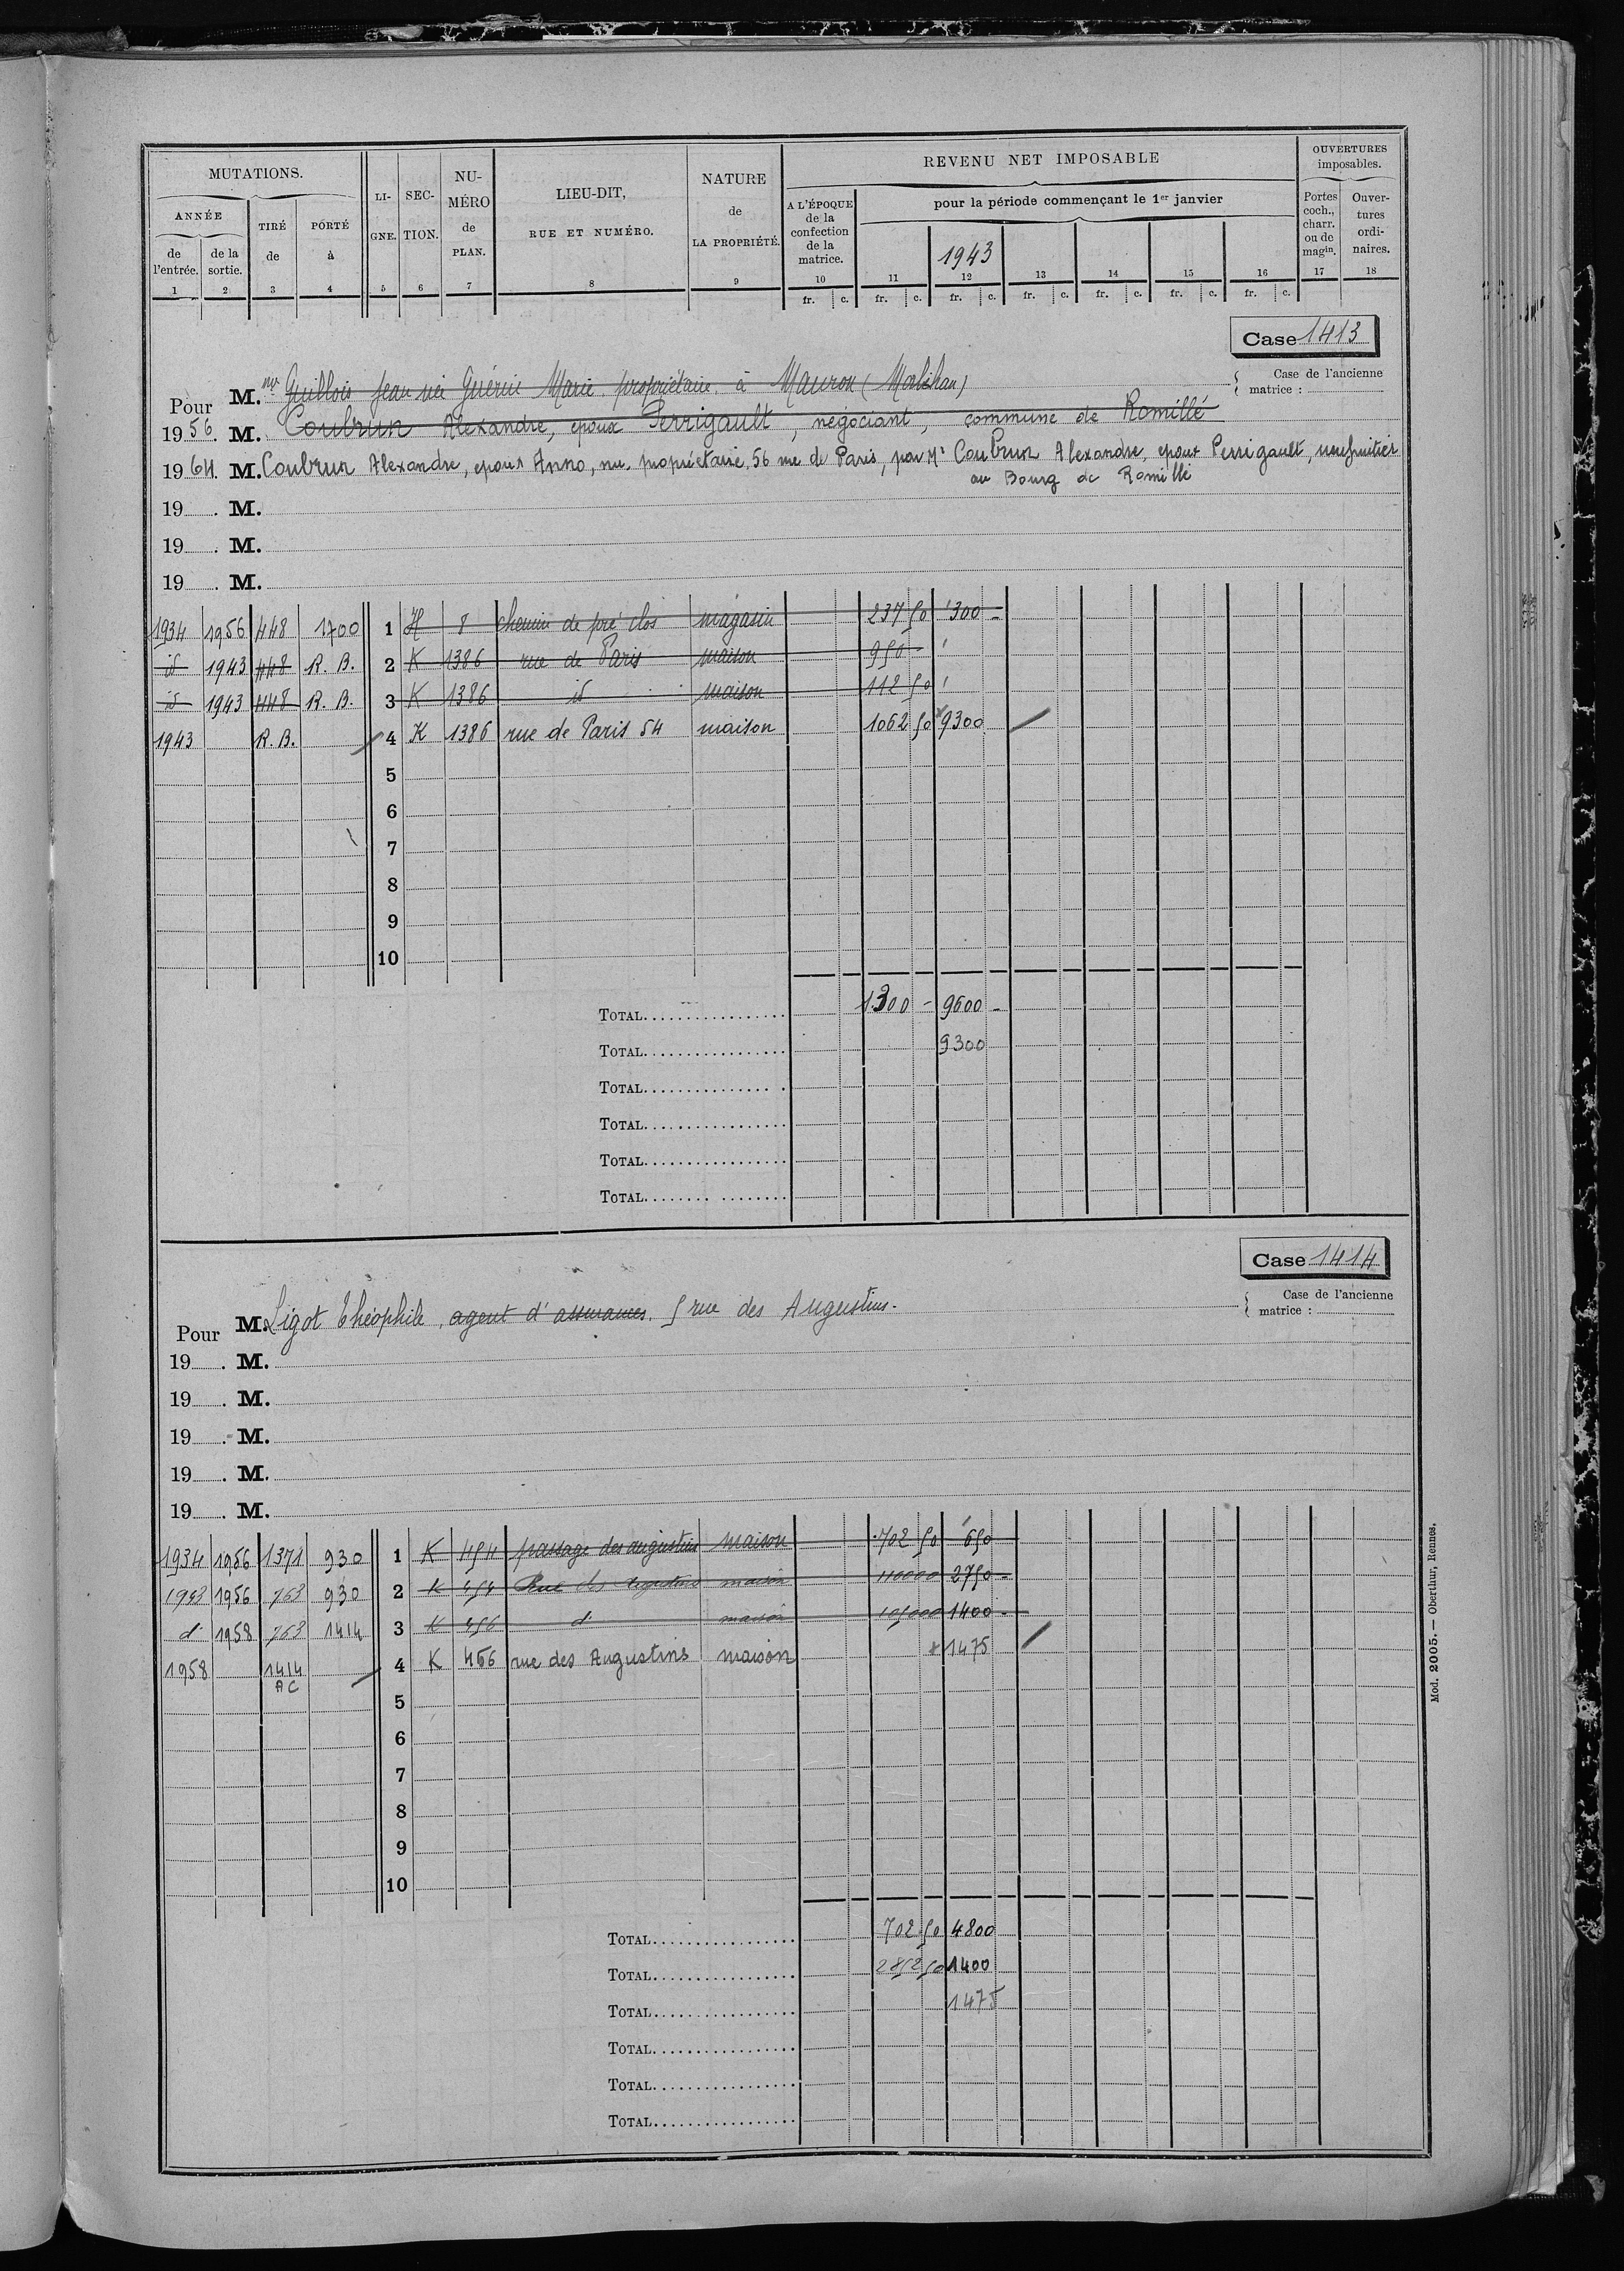 MUTATIONS.
ANNÉE
de l'entrée.
de la sortie.
TIRÉ de
PORTÉ à
LI-GNE.
SEC-TION.
NU-MÉRO de PLAN.
LIEU-DIT, RUE ET NUMÉRO.
NATURE de LA PROPRIÉTÉ.
REVENU NET IMPOSABLE
A L'ÉPOQUE de la confection de la matrice.
pour la période commençant le 1er janvier
1943
OUVERTURES imposables.
Portes coch., charr. ou de magin.
Ouver-tures ordi-naires.
1 2 3 4 5 6 7 8 9 10 11 12 13 14 15 16 17 18
fr. c. fr. c. fr. c. fr. c. fr. c. fr. c. fr. c.
Case 1413
Case de l'ancienne matrice :
Pour M. nve Guillois Jean née Guérin Marie propriétaire à Mauron (Morbihan)
1956 M. Coubrun Alexandre, époux Perrigault, négociant, commune de Romillé
1964 M. Coubrun Alexandre, époux Anno, nu. propriétaire, 56 rue de Paris, par Mr Coubrun Alexandre, époux Perrigault, usufruitier
au Bourg de Romillé
19 . M.
19 . M.
19 . M.
1934 1956 448 1700 1 H 8 chemin de pré clos magasin 237 50 300 -
id 1943 448 R. B. 2 K 1386 rue de Paris maison 950 -
id 1943 448 R. B. 3 K 1386 id maison 112 50
1943 R. B. 4 K 1386 rue de Paris 54 maison 1062 50 9300
5
6
7
8
9
10
TOTAL 1300 - 9600 -
TOTAL 9300
TOTAL
TOTAL
TOTAL
TOTAL
Case 1414
Case de l'ancienne matrice :
Pour M. Ligot Théophile, agent d'assurances. 5 rue des Augustins.
19 . M.
19 . M.
19 . M.
19 . M.
19 . M.
1934 1956 1371 930 1 K 454 passage des augustins maison 702 50 650
1943 1956 763 930 2 K 454 Rue des Augustins maison 2750 -
d° 1958 763 1414 3 K 456 d° maison 1400 -
1958 1414 AC 4 K 456 rue des Augustins maison 1475
5
6
7
8
9
10
TOTAL 702 50 4800
TOTAL 2852 50 1400
TOTAL 1475
TOTAL
TOTAL
TOTAL
Mod. 2005. — Oberthur, Rennes.